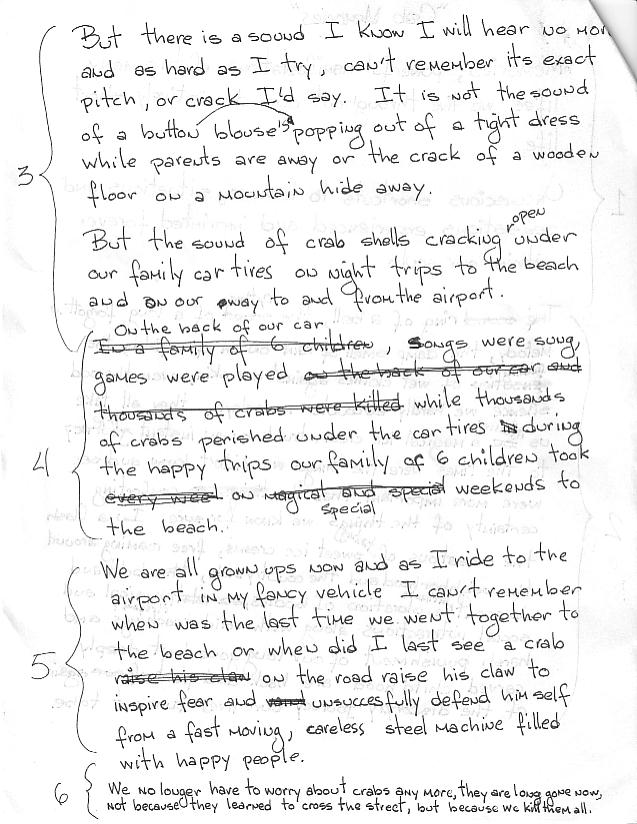 But there is a sound I know I will hear no mor
and as hard as I try, can't remember its exact
pitch, or crack I'd say. It is not the sound
of a button blouse's popping out of a tight dress
3 while parents are away or the crack of a wooden
floor on a mountain hide away.
open
But the sound of crab shells cracking under
our family car tires on night trips to the beach
and on our way to and from the airport.
On the back of our car
In a family of 6 children, songs were sung,
games were played on the back of our car and
thousands of crabs were killed while thousands
of crabs perished under the car tires in during
4 the happy trips our family of 6 children took
every week on magical and special weekends to
special
the beach.
We are all grown ups now and as I ride to the
airport in my fancy vehicle I can't remember
when was the last time we went together to
the beach or when did I last see a crab
5 raise his claw on the road raise his claw to
inspire fear and unsuccesfully defend himself
from a fast moving, careless steel machine filled
with happy people.
6 We no longer have to worry about crabs any more, they are long gone now,
not because they learned to cross the street, but because we kill them all.
1